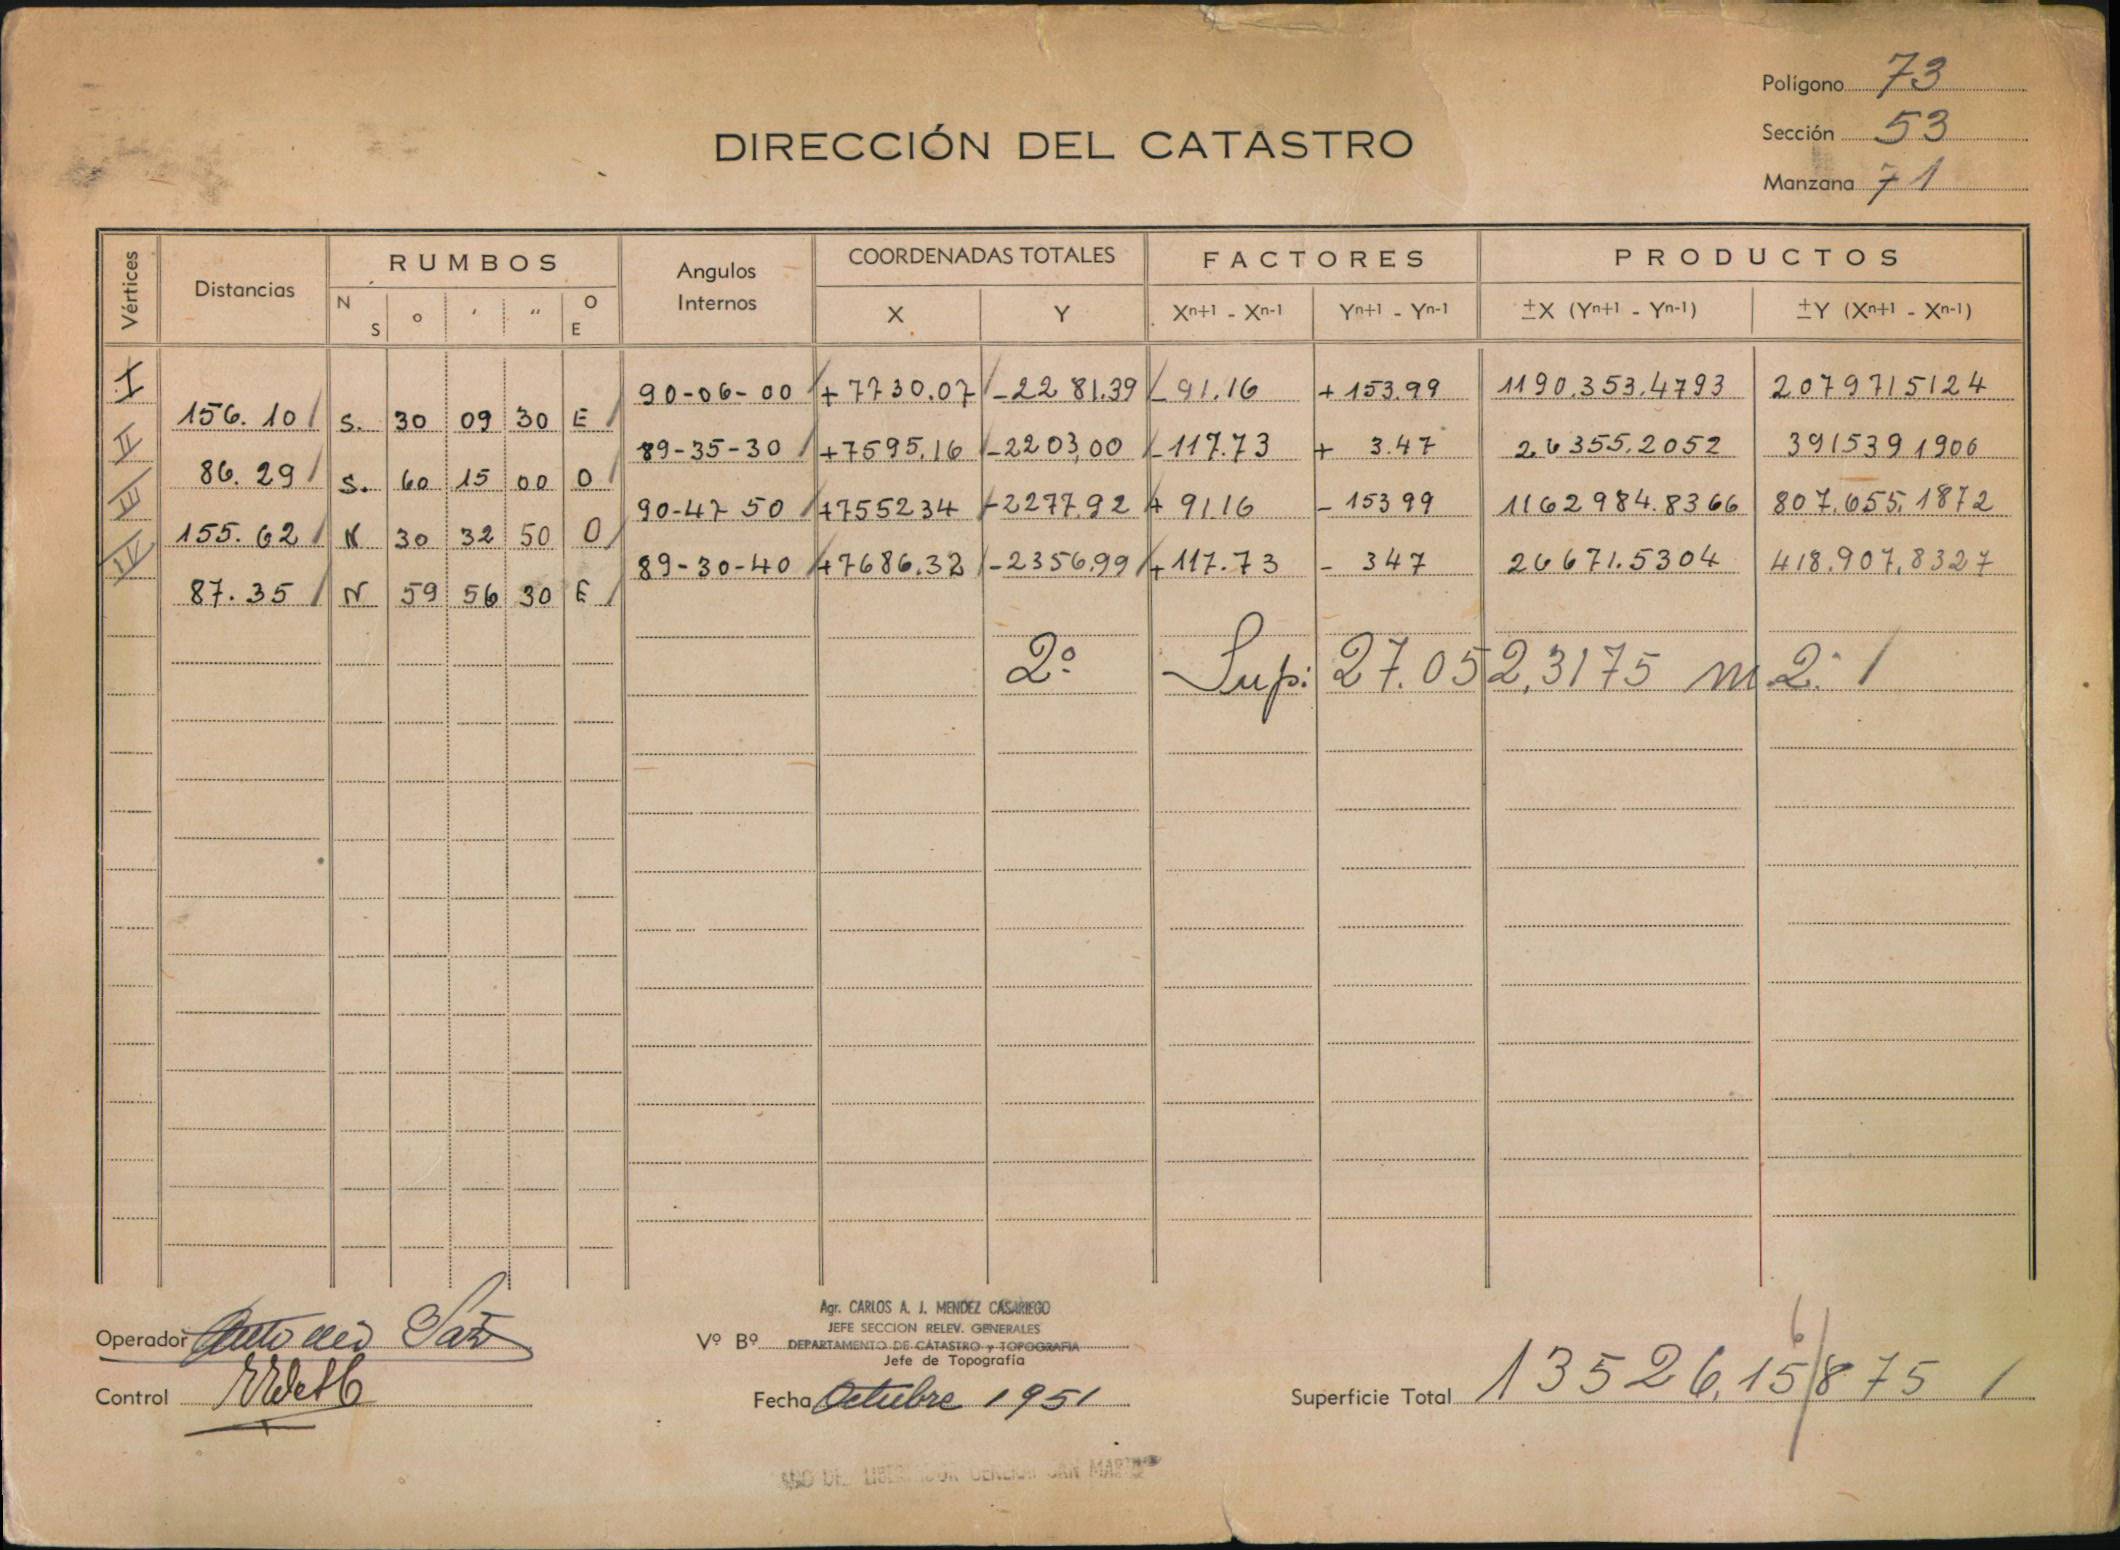 Polígono 73
Sección 53
Manzana 71
DIRECCIÓN DEL CATASTRO
Vértices Distancias RUMBOS Angulos Internos COORDENADAS TOTALES FACTORES PRODUCTOS
N S o ' " O E X Y Xn+1 - Xn-1 Yn+1 - Yn-1 ±X (Yn+1 - Yn-1) ±Y (Xn+1 - Xn-1)
I 90-06-00 +7730.07 -2281.39 -91.16 +153.99 1190.353.4793 2079715124
156.10 S. 30 09 30 E
II 89-35-30 +7595.16 -2203,00 -117.73 + 3.47 26355.2052 3915391906
86.29 S. 60 15 00 O
III 90-47 50 +755234 -2277.92 + 91.16 - 15399 1162984.8366 807.655.1872
155.62 N 30 32 50 O
IV 89-30-40 +7686.32 -2356.99 +117.73 - 347 26671.5304 418.907,8327
87.35 N 59 56 30 E
2º Sup: 27.052,3175 m2.
Operador
Control
Vº Bº
Agr. CARLOS A. J. MENDEZ CASARIEGO
JEFE SECCION RELEV. GENERALES
DEPARTAMENTO DE CATASTRO y TOPOGRAFIA
Jefe de Topografía
Fecha Octubre 1951
6
Superficie Total 13526,15/875
LIBERTADOR GENERAL SAN